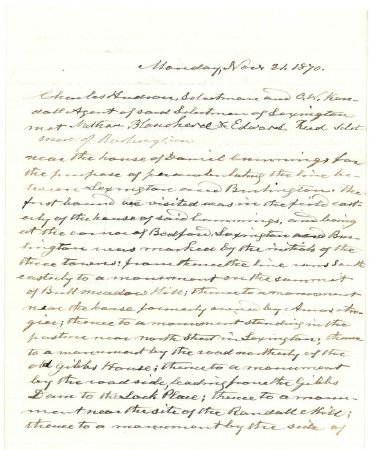 Monday, Nov. 21. 1870.
Charles Hudson, Selectman and O. W. Ken-
dall Agent of said Selectmen of Lexington
met Nathan Blanchard & Edward Reed Select
men of Burlington
near the house of Daniel Cummings for
the purpose of perambulating the line be-
tween Lexington and Burlington. The
first bound we visited was in the field east-
erly of the house of said Cummings, and being
at the corner of Bedford, Lexington and Bur-
lington was marked by the initials of the
three towns: from thence the line runs South
easterly to a monument on the summit
of Bull meadow Hill; thence to a monument
near the house formerly owned by Amos
; thence to a monument standing in the
pasture near north Street in Lexington; thence
to a monument by the road northerly of the
old Gibbs House; thence to a monument
by the road side, leading from the Gibbs
Dam to the Place; thence to a monu-
ment near the site of the Randall Hill;
thence to a monument by the side of